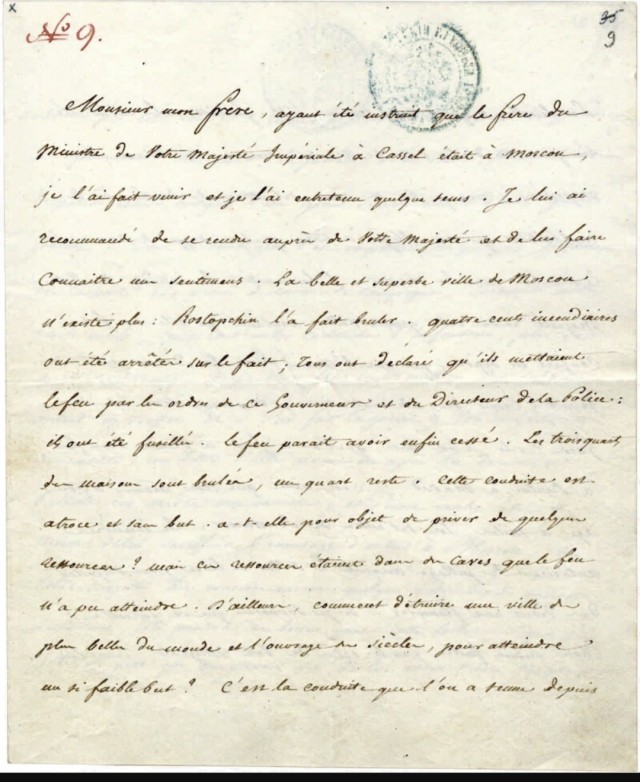 x
No 9.
35
9
Monsieur mon frere, ayant été instruit que le frere du
Ministre de Votre Majesté Impériale à Cassel était à Moscou,
je l'ai fait venir et je l'ai entretenu quelque tems. Je lui ai
recommandé de se rendre auprès de Votre Majesté et de lui faire
Connaitre mes sentimens. La belle et superbe ville de Moscou
n'existe plus: Rostopchin l'a fait bruler. quatre cents incendiaires
ont été arrêtés sur le fait; Tous ont déclaré qu'ils mettaient
le feu par les ordres de ce Gouverneur et du Directeur de la Police:
ils ont été fusillés. le feu parait avoir enfin cessé. Les trois quarts
des maisons sont brulées, un quart reste. Cette conduite est
atroce et sans but. a-t-elle pour objet de priver de quelques
ressources? mais ces ressources étaient dans des Caves que le feu
n'a pu atteindre. D'ailleurs, comment détruire une ville des
plus belles du monde et l'ouvrage des siècles, pour atteindre
un si faible but? C'est la conduite que l'on a tenue depuis